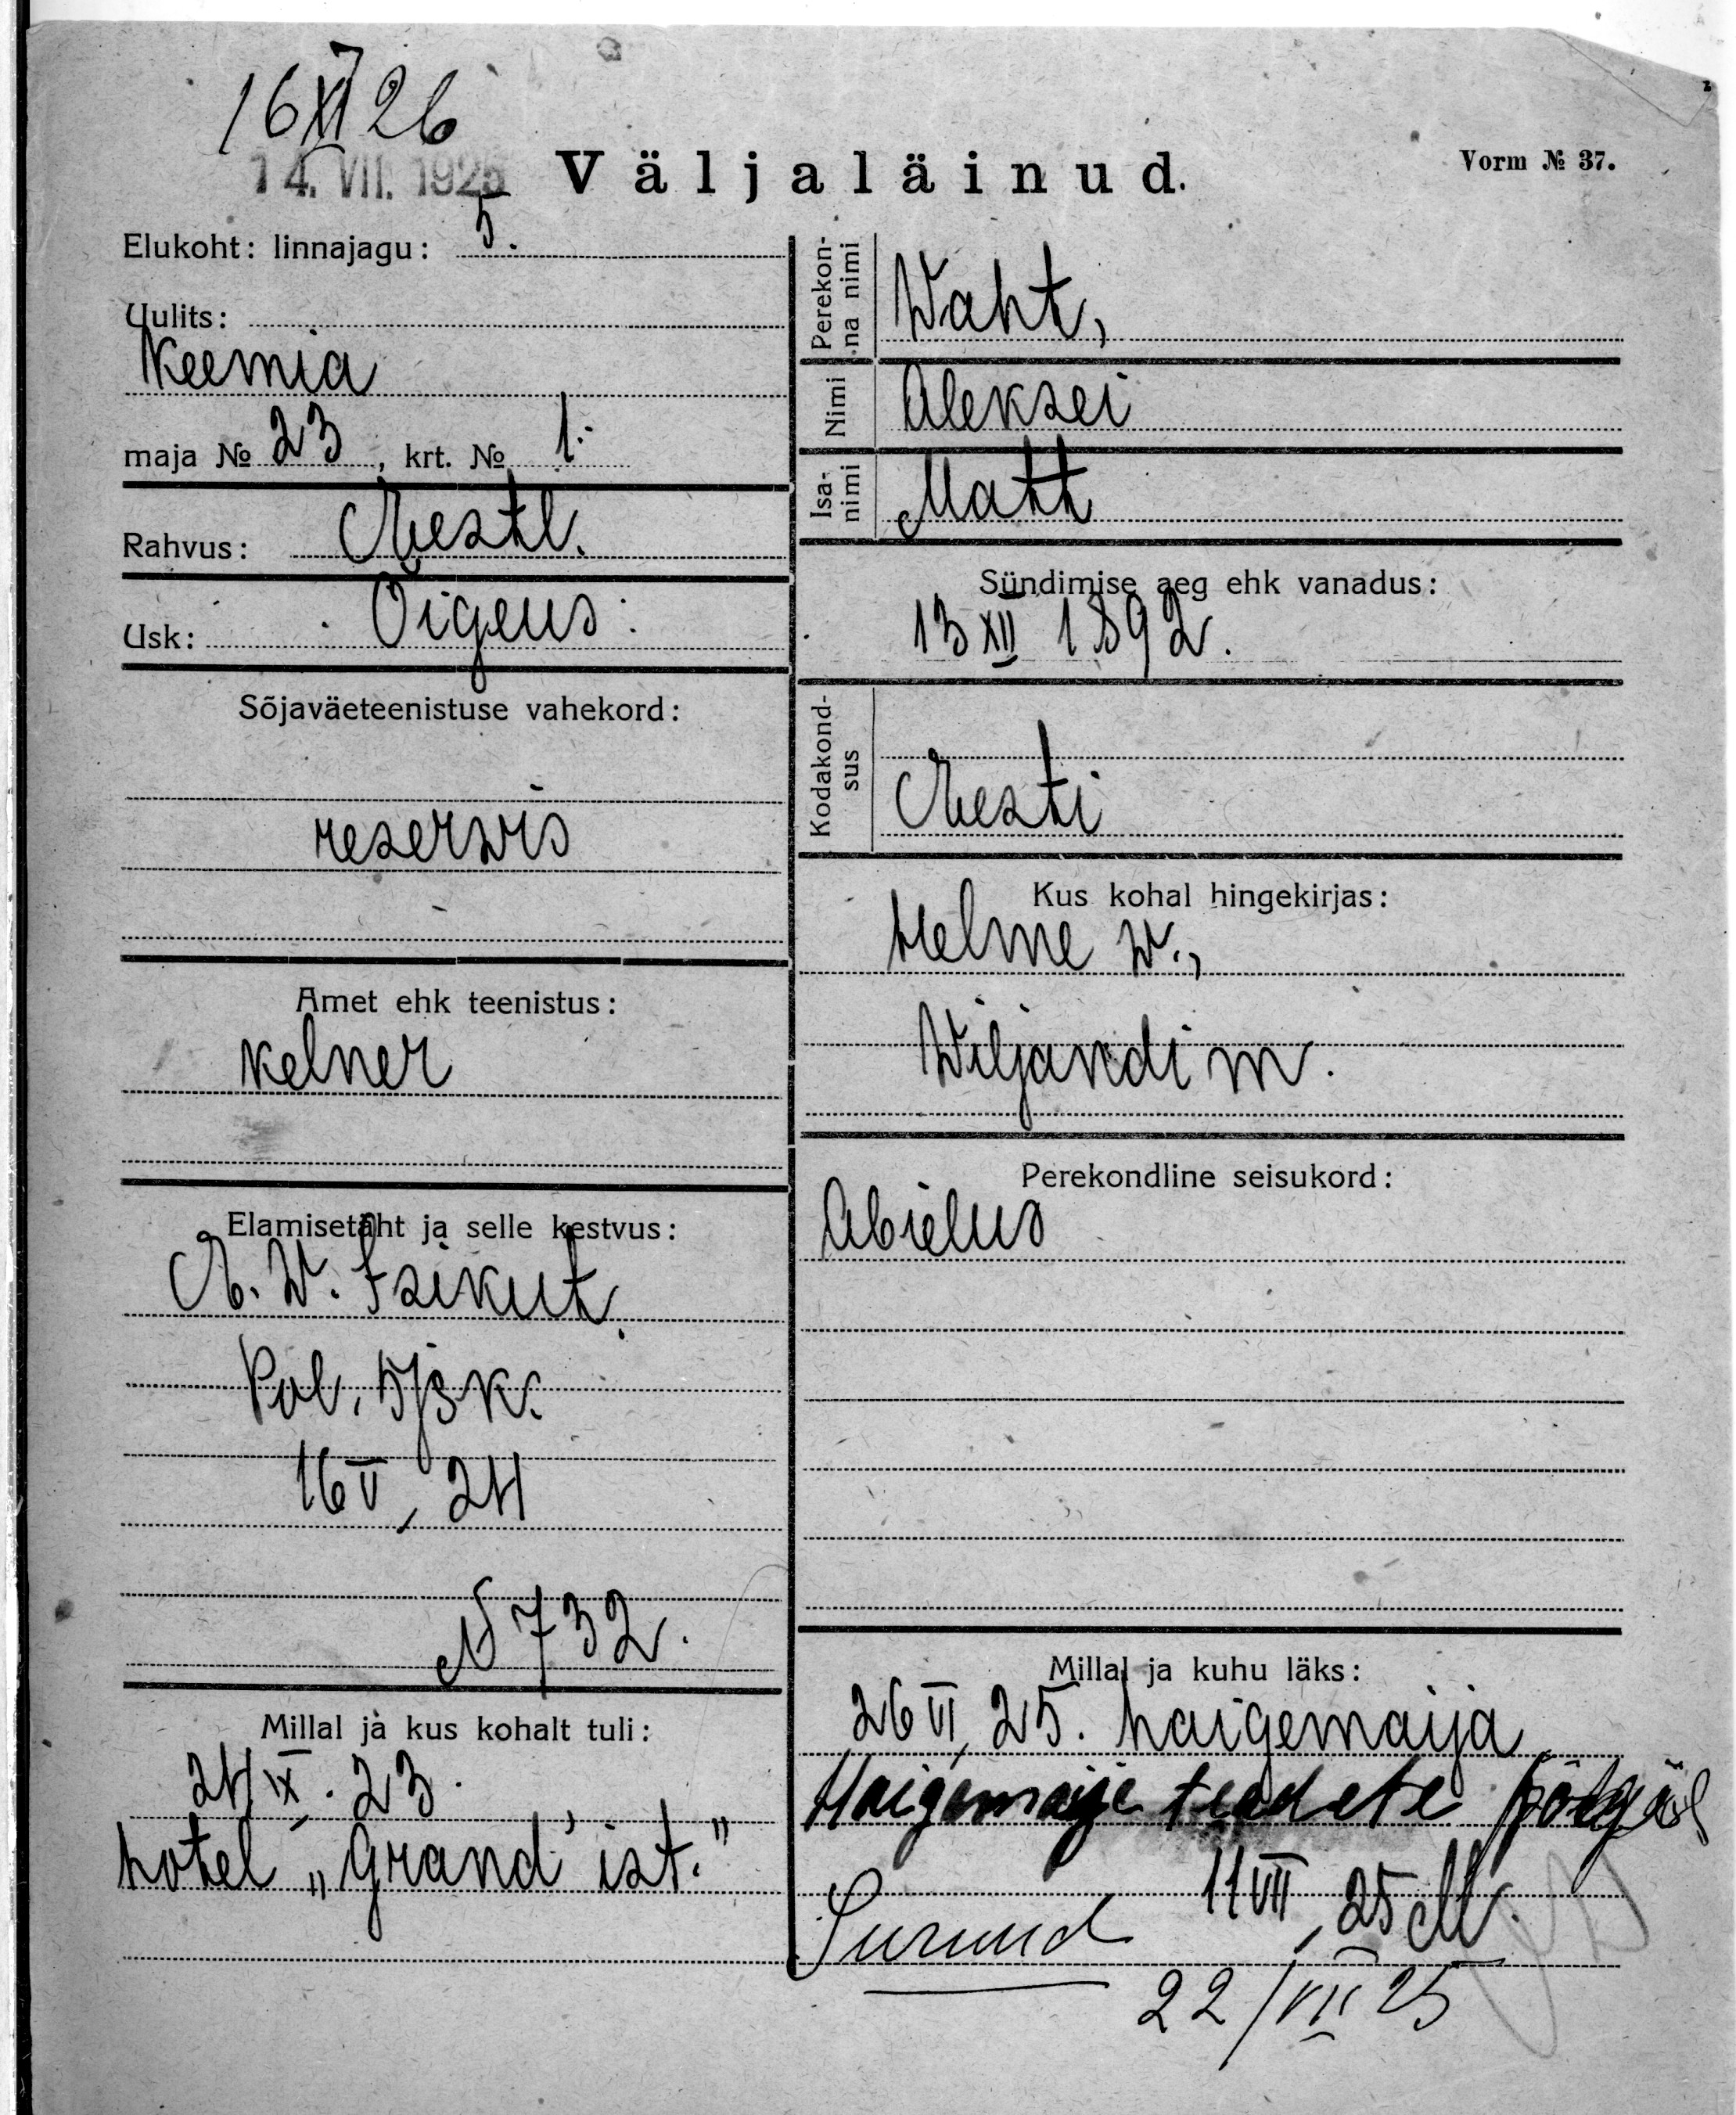 16 XII 26
14. VII. 1925
Väljaläinud.
Vorm № 37.
Elukoht: linnajagu: 5.
Uulits:
Keemia
maja № 23, krt. № 1.
Rahvus: Eestl.
Usk: Õigeus:
Sõjaväeteenistuse vahekord:
reserwis
Amet ehk teenistus:
kelner
Elamisetäht ja selle kestvus:
E. W. Isikut.
Pol. 5/jsk.
16 V, 24
N 732.
Millal ja kus kohalt tuli:
24 IX. 23.
hotel „Grand" ist."
Perekon-
na nimi
Waht,
Nimi Aleksei
Isa-
nimi
Matt
Sündimise aeg ehk vanadus:
13 XII 1892.
Kodakond-
sus
Eesti
Kus kohal hingekirjas:
Helme w.,
Wiljandi m.
Perekondline seisukord:
Abielus
Millal ja kuhu läks:
26 VI, 25. haigemaija
Haigemaije teadete põhjal
11 VII, 25
Surnud
22/VII 25